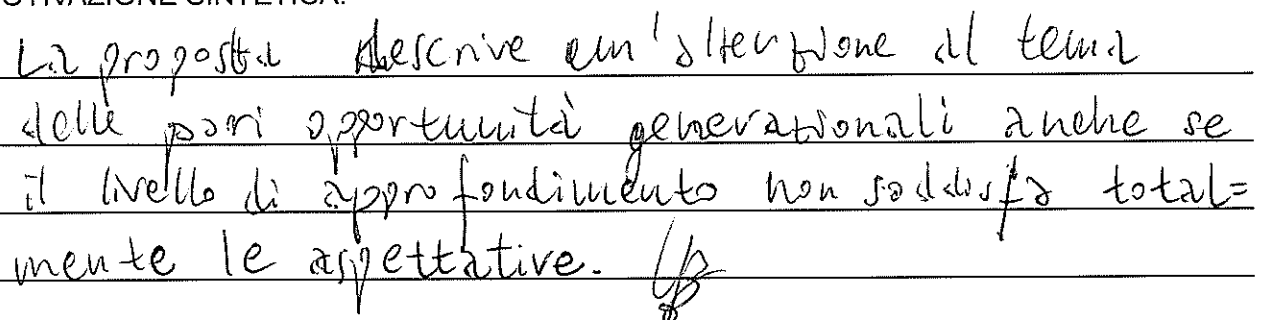 OTIVAZIONE SINTETICA:
La proposta descrive un'attenzione al tema
delle pari opportunità generazionali anche se
il livello di approfondimento non soddisfa total=
mente le aspettative.